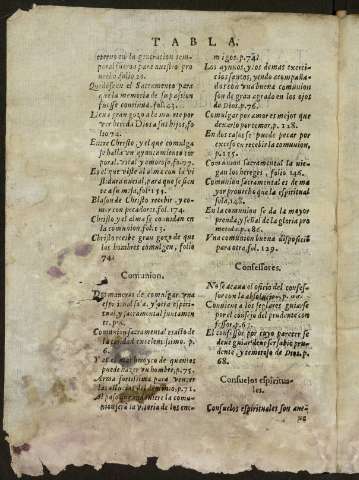 TABLA.
eterno en la generacion tem-
poral fuera para nuestro pro
vecho folio 20.
Quedose en el Sacramento para
q̃ la memoria de su passion
fuesse continua. fol. 43.
Llena gran gozo a la muerte por
ver bevida Dios a sus hijos, fo
lio 74.
Entre Christo, y el que comulga
se halla un ayuntamiento cor
poral, vital, y amoroso, fo. 77.
Es el que viste al alma con la vi
stidura nupcial, para que se sien
te a su mesa, folio
Blason de Christo recebir, y co-
mer con pecadores. fol. 174.
Christo y el alma se comidan en
la comunion, fol. 13.
Christo recibe gran gozo de que
los hombres comulgen, folio
74.
Comunion.
Dos maneras de comulgar, una
espiritual y
ritual, y sacramental juntamen
te.
Comunion sacramental es alto de
la caridad excelentissimo. p.
6.
Y es el mas heroyco de quantos
puede hazer un hombre, p. 75.
Arma fortissima para vencer
las astucias del demonio, p. 71.
Al paso que anduviere la comu-
nion, sera la vitoria de los ene-
migos. p. 74.
Los ayunos, y los demas exerci-
cios santos, yendo acompaña-
dos con una buena comunion
son de gran agrado en los ojos
de Dios. p. 76.
Comulgar por amor es mejor que
dexarlo por temor, p. 128.
En dos casos se puede pecar por
exceso en recebir la comunion,
p. 135.
Comunion sacramental la nie-
gan los hereges, folio 146.
Comunion sacramental es de ma
yor provecho que la espiritual
fol. 148.
En la comunion se da la mayor
prenda, y señal de la gloria pro
metida. p. 186.
Una comunion buena disposicio
para otra, fol. 129.
Confessores.
No se acava el oficio del confes-
sor con la absolucion, p.
Conviene a los seglares guiarse
por el consejo del prudente con
fessor, p. 63.
El confessor, por cuyo parecer se
deve guiar deve ser sabio pru-
dente, y temeroso de Dios, p.
68.
Consuelos espiritua-
les.
Consuelos espirituales son ane-